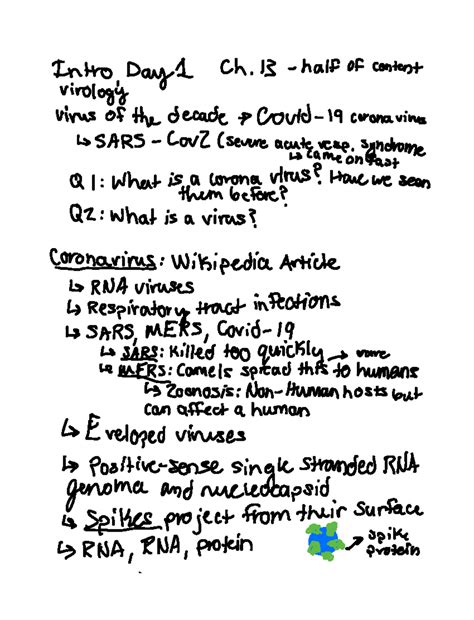 Intro Day 1 Ch. 13 - half of content
virology
virus of the decade → Covid-19 corona virus
↳ SARS - Cov2 (severe acute resp. syndrome
↳ came on fast
Q1: What is a corona virus? Have we seen
them before?
Q2: What is a virus?
Coronavirus: Wikipedia Article
↳ RNA viruses
↳ Respiratory tract infections
↳ SARS, MERS, Covid-19
↳ SARS: Killed too quickly →
↳ MERS: Camels spread this to humans
↳ Zoonosis: Non-Human hosts but
can affect a human
↳ Eveloped viruses
↳ Positive-sense single stranded RNA
genoma and nucleocapsid
↳ Spikes project from their surface
↳ RNA, RNA, protein
→ spike
protein